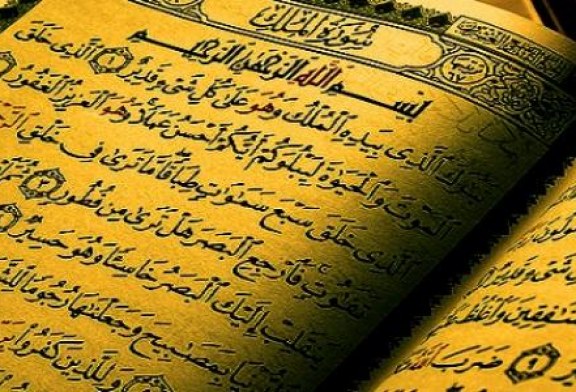 سُورَةُ الْمُلْكِ
بِسْمِ اللَّهِ الرَّحْمَٰنِ الرَّحِيمِ
تَبَٰرَكَ الَّذِي بِيَدِهِ الْمُلْكُ وَهُوَ عَلَىٰ كُلِّ شَيْءٍ قَدِيرٌ ١ الَّذِي خَلَقَ
الْمَوْتَ وَالْحَيَوٰةَ لِيَبْلُوَكُمْ أَيُّكُمْ أَحْسَنُ عَمَلًا وَهُوَ الْعَزِيزُ الْغَفُورُ
الَّذِي خَلَقَ سَبْعَ سَمَٰوَٰتٍ طِبَاقًا مَا تَرَىٰ فِي خَلْقِ
تَفَٰوُتٍ فَارْجِعِ الْبَصَرَ هَلْ تَرَىٰ مِنْ فُطُورٍ ٣ ثُمَّ
يَنْقَلِبْ إِلَيْكَ الْبَصَرُ خَاسِئًا وَهُوَ حَسِيرٌ
بِمَصَٰبِيحَ وَجَعَلْنَٰهَا رُجُومًا
وَلِلَّذِينَ كَفَرُوا
شَيْءٍ قَدِيرٌ
وَاغْلُظْ
٩ ضَرَبَ اللَّهُ